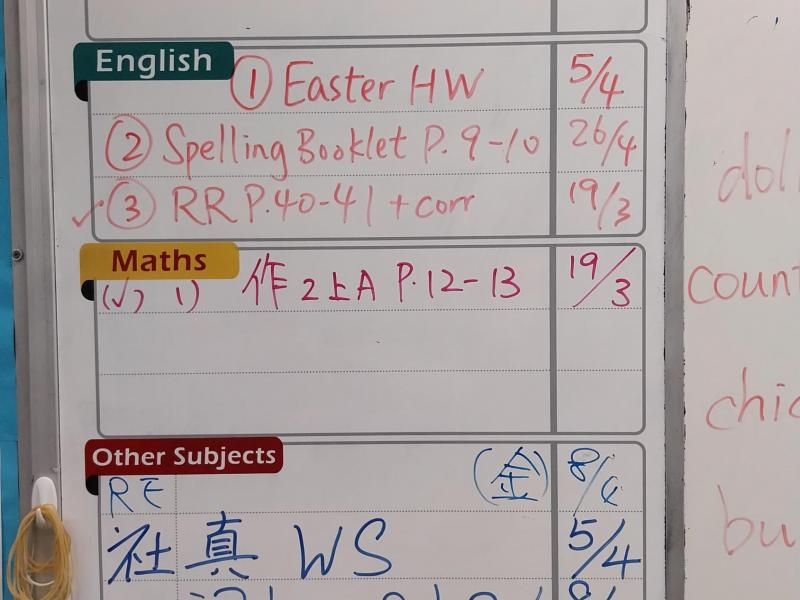 English
① Easter HW 5/4
② Spelling Booklet P.9-10 26/4
✓ ③ RR P.40-41 + corr 19/3
Maths
(√) 1) 作2上A P.12-13 19/3
Other Subjects
RE (金) 8/4
社 真 WS 5/4
dol
count
chic
bu